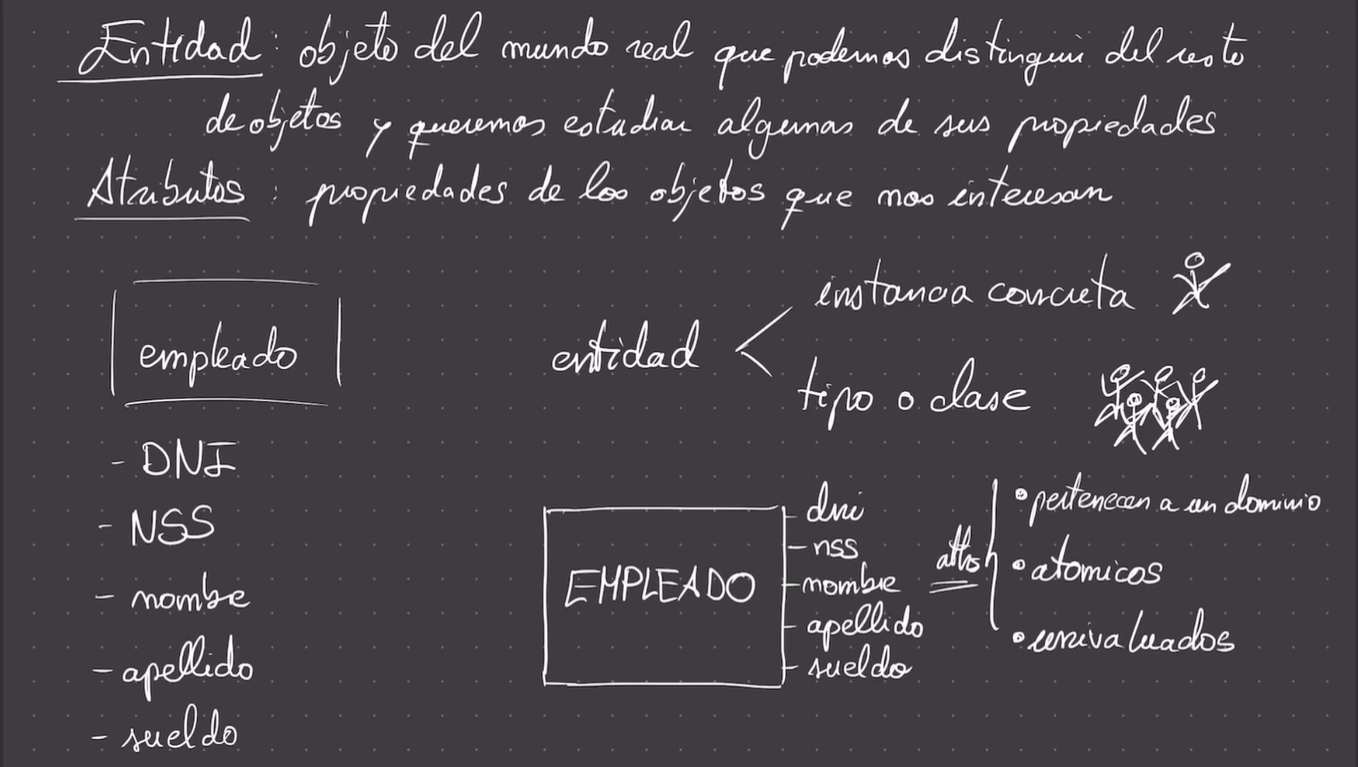 Entidad: objeto del mundo real que podemos distinguir del resto
de objetos y queremos estudiar algunas de sus propiedades
Atributos: propiedades de los objetos que nos interesan
empleado
- DNI
- NSS
- nombre
- apellido
- sueldo
entidad
instancia concreta
tipo o clase
EMPLEADO
- dni
- nss
- nombre
- apellido
- sueldo
attbs
• pertenecen a un dominio
• atomicos
• univaluados